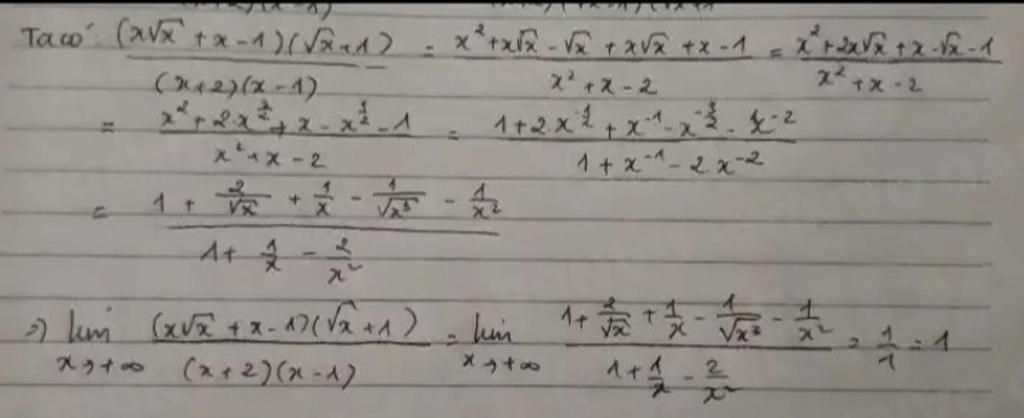 Ta có: ((x√x + x - 1)(√x + 1))/((x+2)(x-1)) = (x² + x√x - √x + x√x + x - 1)/(x² + x - 2) = (x² + 2x√x + x - √x - 1)/(x² + x - 2)
= (x² + 2x^(3/2) + x - x^(1/2) - 1)/(x² + x - 2) = (1 + 2x^(-1/2) + x⁻¹ - x^(-3/2) - x⁻²)/(1 + x⁻¹ - 2x⁻²)
= (1 + 2/√x + 1/x - 1/√x³ - 1/x²)/(1 + 1/x - 2/x²)
=) lim x→+∞ ((x√x + x - 1)(√x + 1))/((x+2)(x-1)) = lim x→+∞ (1 + 2/√x + 1/x - 1/√x³ - 1/x²)/(1 + 1/x - 2/x²) = 1/1 = 1